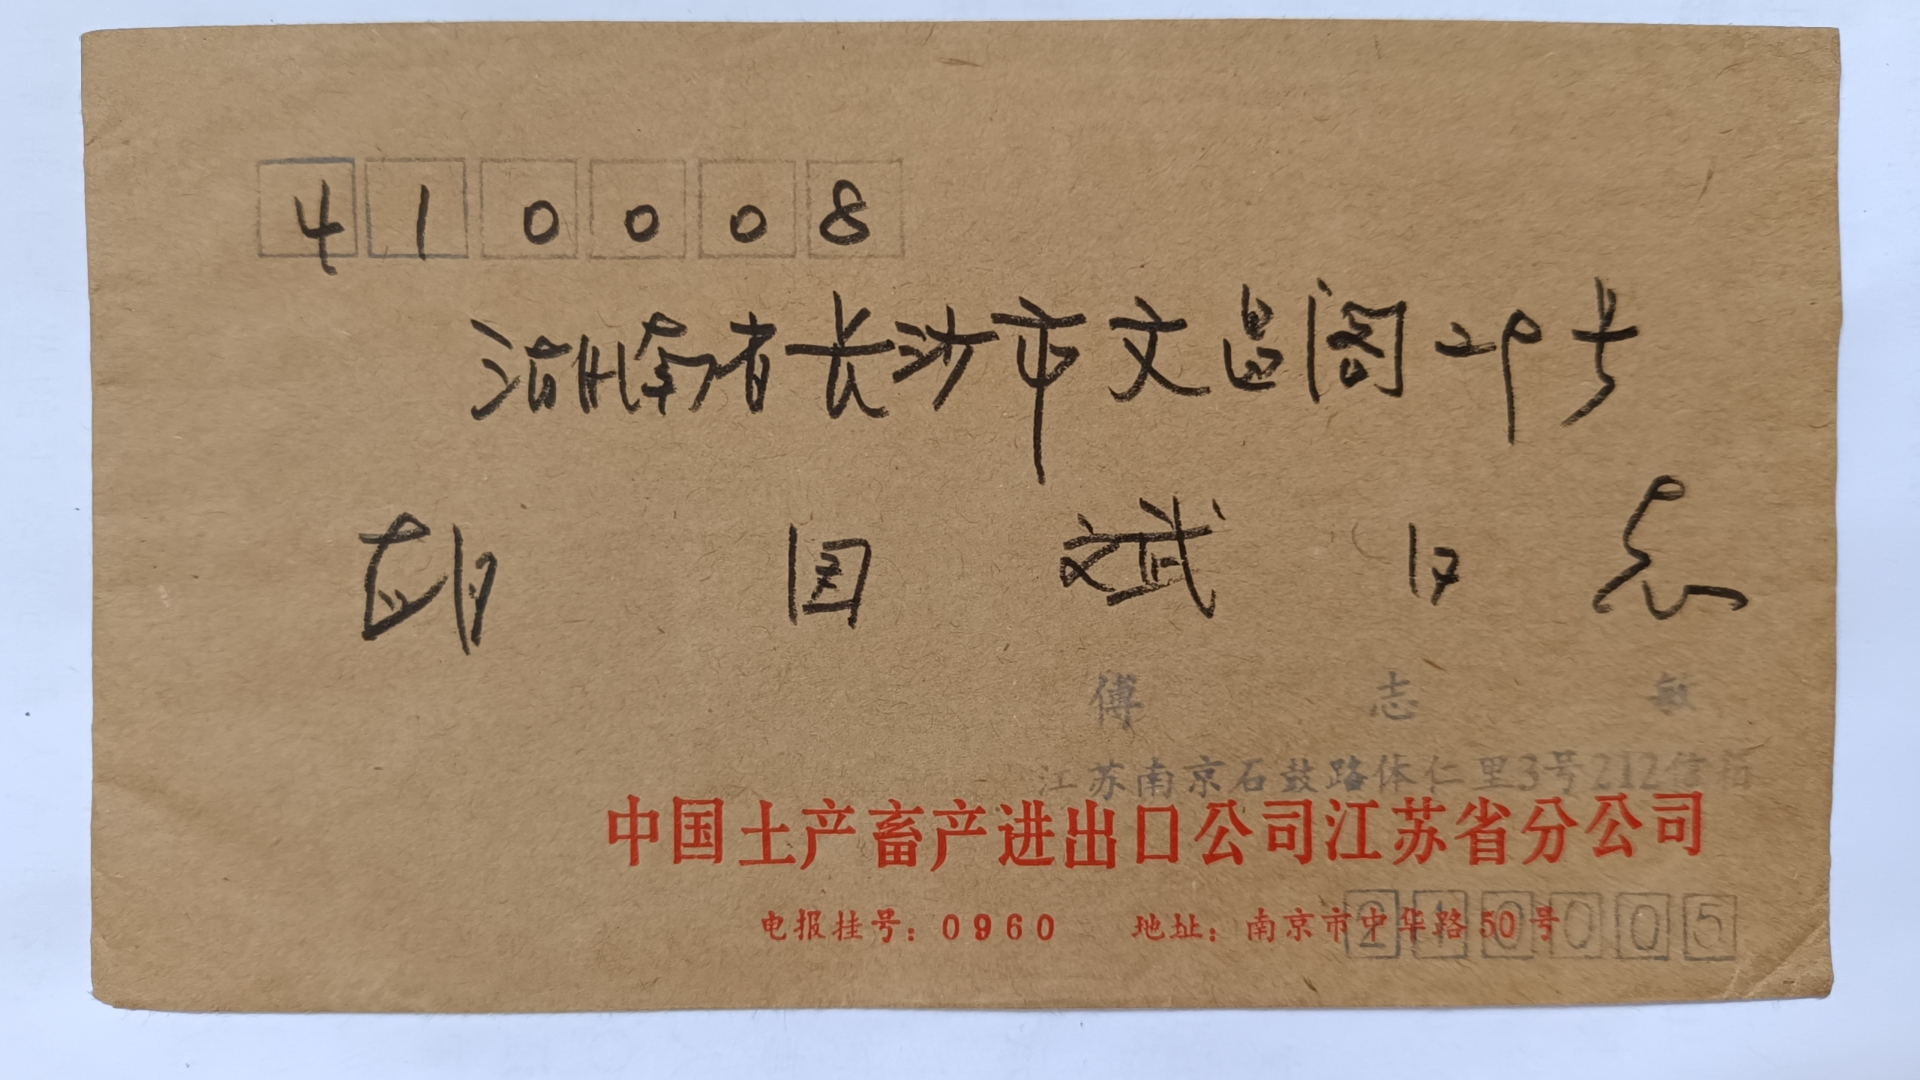 410008
湖南省长沙市文昌阁29号
胡国斌同志
傅志敏
江苏南京石鼓路体仁里3号212信箱
中国土产畜产进出口公司江苏省分公司
电报挂号：0960 地址：南京市中华路50号
210005